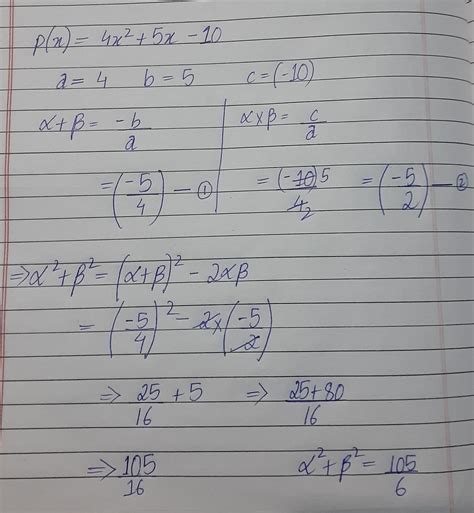 p(x) = 4x² + 5x - 10
a = 4 b = 5 c = (-10)
α+β = -b/a α×β = c/a
= (-5/4) — ① = (-10)5/4 2 = (-5/2) — ②
⇒ α² + β² = (α+β)² - 2αβ
= (-5/4)² - 2×(-5/2)
⇒ 25/16 + 5 ⇒ 25+80/16
⇒ 105/16 α² + β² = 105/6